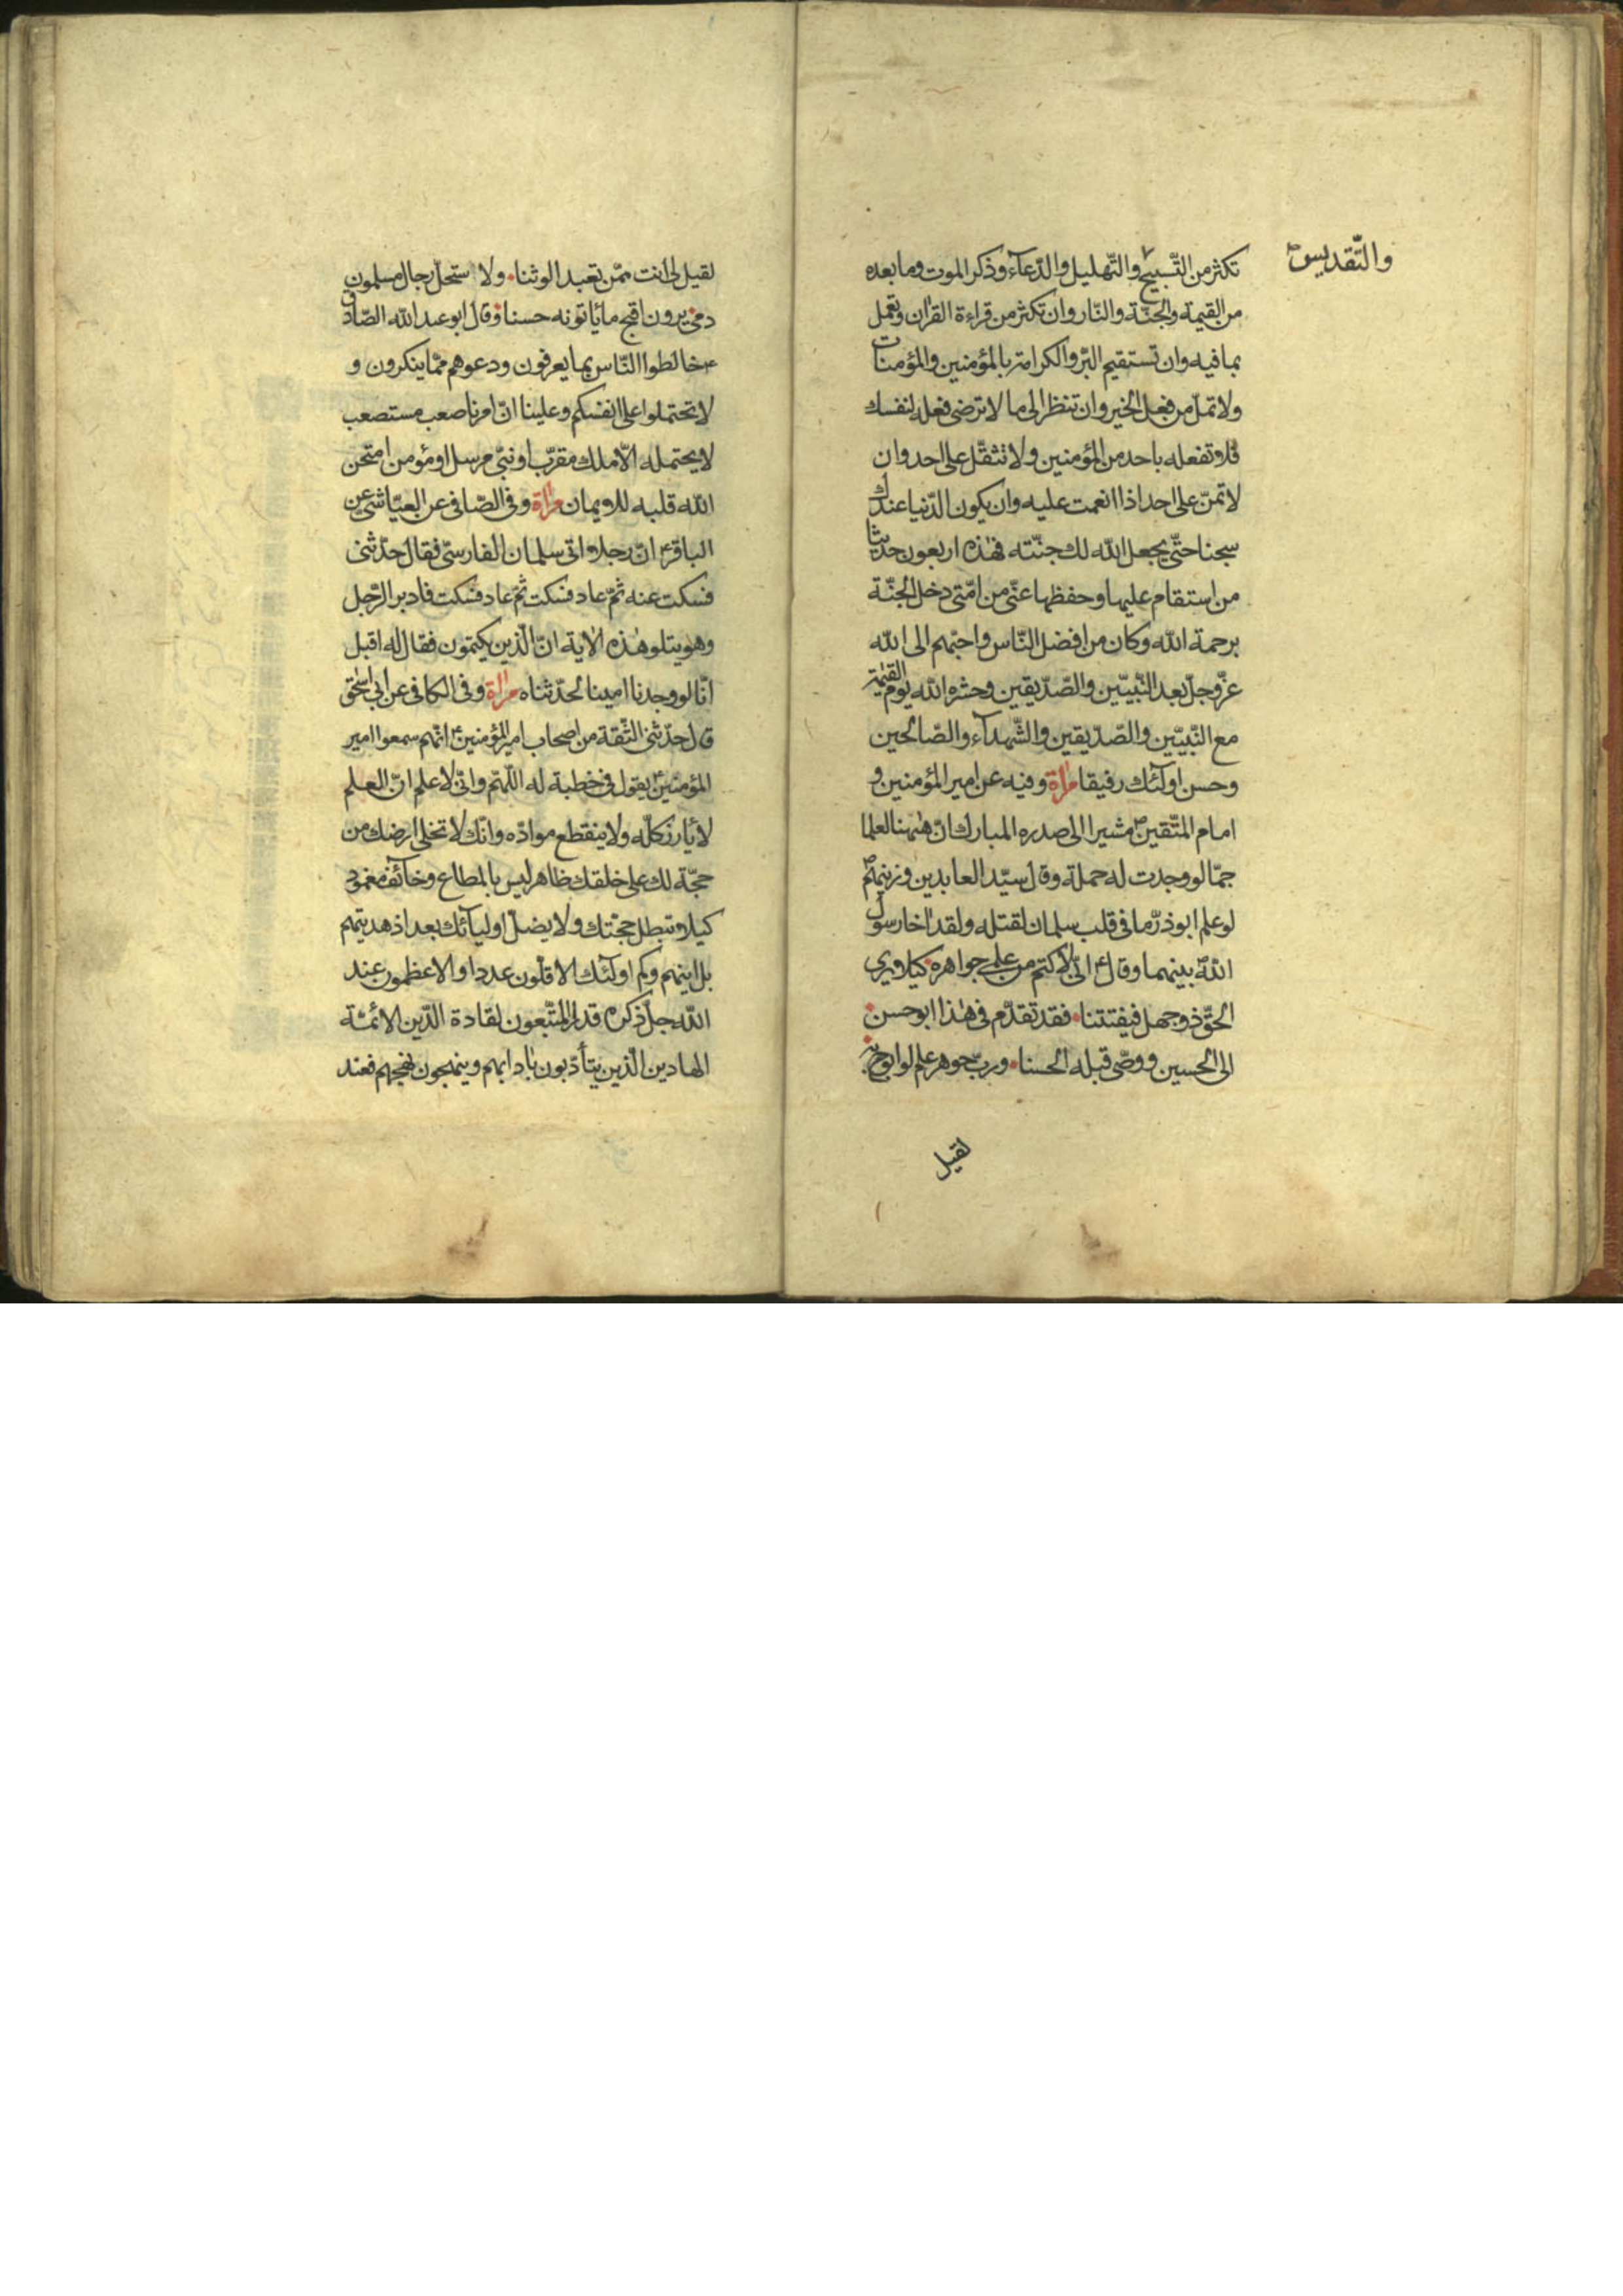 والتّقديس
تكثر من التّسبيح والتّهليل والدّعاء وذكر الموت وما بعده
من القيمة والجنّة والنّار وان تكثر من قراءة القران وتعمل
بما فيه وان تستقيم البرّ والكرامة بالمؤمنين والمؤمنات
ولا تملّ من فعل الخير وان تنظر الى ما لا ترضى فعله لنفسك
فلا تفعله باحد من المؤمنين ولا تثقّل على احد وان
لا تمنّ على احد اذا انعمت عليه وان يكون الدّنيا عندك
سجنا حتّى يجعل الله لك جنّته فهذه اربعون حديثا
من استقام عليها وحفظها عنّى من امّتى دخل الجنّة
برحمة الله وكان من افضل النّاس واحبّهم الى الله
عزّ وجلّ بعد النّبيّين والصّدّيقين وحشره الله يوم القيمة
مع النّبيّين والصّدّيقين والشّهدآء والصّالحين
وحسن اولئك رفيقا مراة وفيه عن امير المؤمنين و
امام المتّقين مشيرا الى صدره المبارك انّ ههنا لعلما
جمّا لو وجدت له حملة وقال سيّد العابدين وزينهم
لو علم ابوذرّ ما فى قلب سلمان لقتله ولقد اخا رسول
الله بينهما وقال انّى لاكتم من علمى جواهره كيلا يرى
الحقّ ذو جهل فيفتتنا فقد تقدّم فى هذا ابو حسن
الى الحسين ووصّى قبله الحسنا وربّ جوهر علم لو ابوح به
لقيل
لقيل لى انت ممّن تعبد الوثنا ولا ستحلّ رجال مسلمون
دمى يرون اقبح ما ياتونه حسنا وقال ابو عبد الله الصّادق
خالطوا النّاس بما يعرفون ودعوهم ممّا ينكرون و
لا تحتملوا على انفسكم وعلينا انّ امرنا صعب مستصعب
لا يحتمله الّا ملك مقرّب او نبىّ مرسل او مؤمن امتحن
الله قلبه للايمان مراة وفى الصّافى عن العيّاشى عن
الباقر انّ رجلا اتى سلمان الفارسىّ فقال حدّثنى
فسكت عنه ثمّ عاد فسكت ثمّ عاد فسكت فادبر الرّجل
وهو يتلو هذه الاية انّ الّذين يكتمون فقال له اقبل
انّا لو وجدنا امينا لحدّثناه مراة وفى الكافى عن ابى اسحق
قال حدّثنى الثّقة من اصحاب امير المؤمنين انّهم سمعوا امير
المؤمنين يقول فى خطبة له اللّهمّ وانّى لاعلم انّ العلم
لا يأرز كلّه ولا ينقطع موادّه وانّك لا تخلى ارضك من
حجّة لك على خلقك ظاهر ليس بالمطاع وخائف مغمود
كيلا تبطل حجّتك ولا يضلّ اوليائك بعد اذ هديتهم
بل اينهم وكم اولئك الاقلّون عددا والاعظمون عند
الله جلّ ذكره قدرا المتّبعون لقادة الدّين الائمّة
الهادين الّذين يتأدّبون بادابهم وينهجون نهجهم فعند